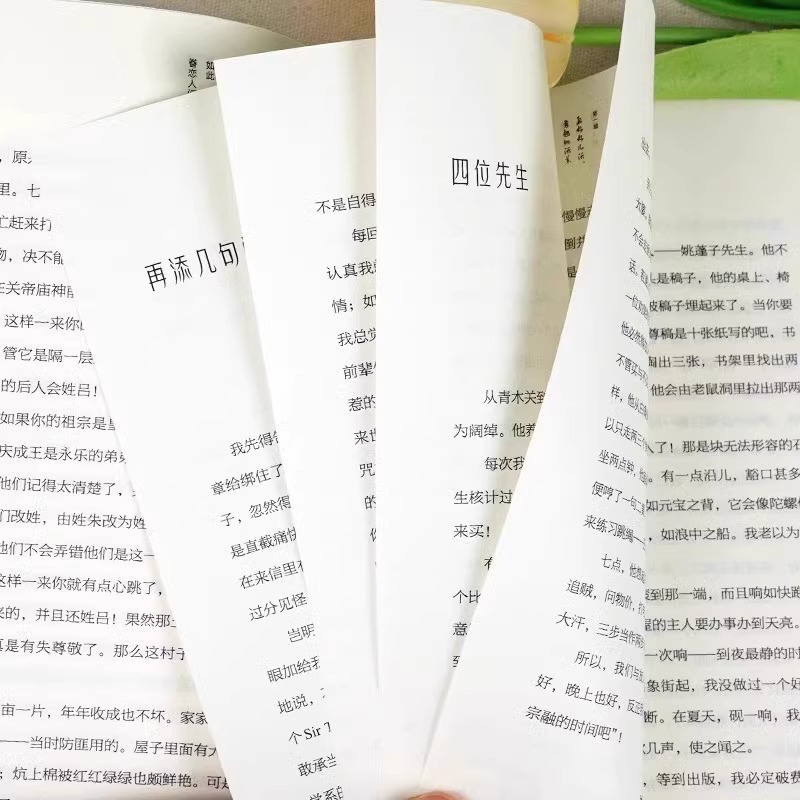 如此
眷恋人
原
里。七
忙赶来打
物，决不能
在关帝庙神前
这样一来你
管它是隔一层
的后人会姓吕！
如果你的祖宗是
庆成王是永乐的弟弟
他们记得太清楚了，
们改姓，由姓朱改为姓
他们不会弄错他们是这一
这样一来你就有点心跳了，
来的，并且还姓吕！果然那
真是有失尊敬了。那么这村子
亩一片，年年收成也不坏。家家
——当时防匪用的。屋子里面有
；炕上棉被红红绿绿也颇鲜艳。可是
再添几句
我先得
章给绑住了
子，忽然得
是直截痛快
在来信里有
过分见怪
岂明
眼加给我
地说，
个 Sir T
敢承
学系的
不是自得
每回
认真我
情；如
我总觉
前辈
惹的
来世
咒
的
四位先生
从青木关到
为阔绰。他
每次我
生核计过
来买！
有
个比
意
到
第一辑
慢慢
倒
是
太
不会
话，
一位
他必然
不管买与不
样，他从
以只走两三个
坐两点钟，他
便哼了一句二
来练习跳绳——
七点，他
追贼，问物价，
大汗，三步当作两步
所以，我们与
好，晚上也好，反正
宗融的时间吧”！
——姚蓬子先生。他不
头是稿子，他的桌上、椅
被稿子埋起来了。当你要
尊稿是十张纸写的吧，书
掏出三张，书架里找出两
他会由老鼠洞里拉出那两
人了！那是块无法形容的石
。有一点沿儿，豁口甚多
如元宝之背，它会像陀螺
，如浪中之船。我老以为
滚到那一端，而且响如快跑
屋的主人要办事办到天亮。
一次响——到夜最静的时
象街起，我没做过一个好
断。在夏天，砚一响，我
几声，使之闻之。
，等到出版，我必定破费